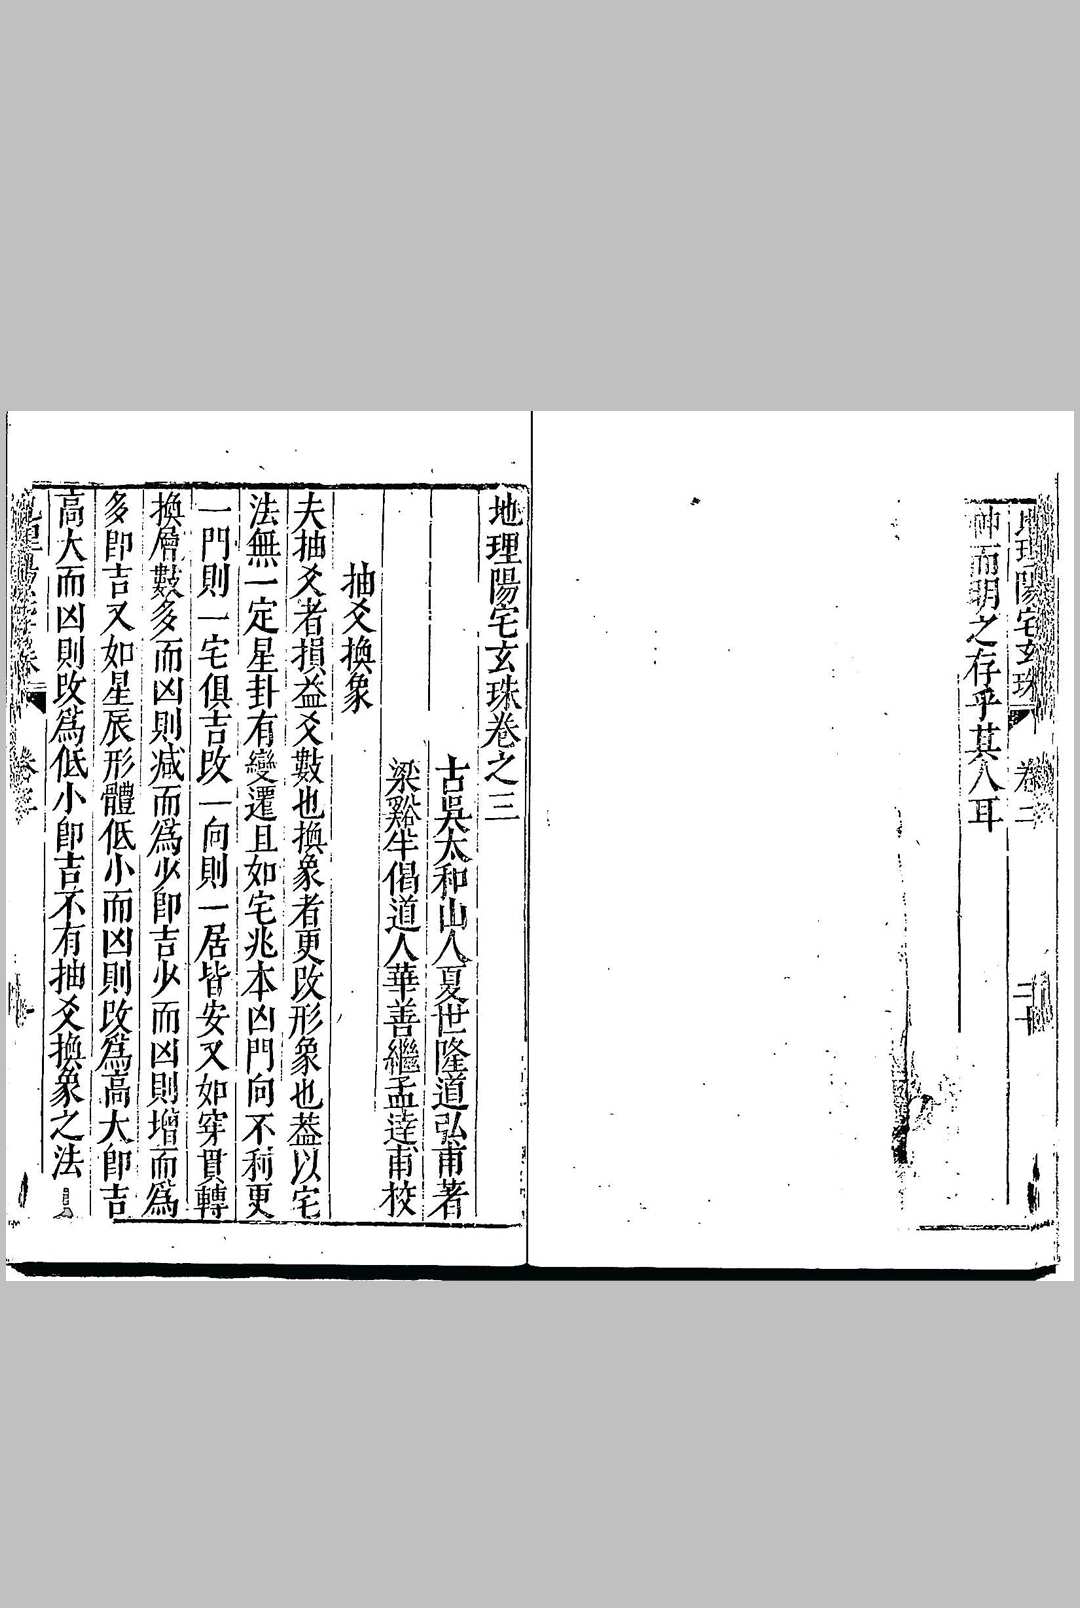 地理陽宅玄珠 卷二 二十
神而明之存乎其人耳
地理陽宅玄珠卷之三
古吳太和山人夏世隆道弘甫著
梁谿半偈道人華善繼孟達甫校
抽爻換象
夫抽爻者損益爻數也換象者更改形象也葢以宅
法無一定星卦有變遷且如宅兆本凶門向不利更
一門則一宅俱吉改一向則一居皆安又如穿貫轉
換層數多而凶則減而爲少卽吉少而凶則增而爲
多卽吉又如星辰形體低小而凶則改爲高大卽吉
高大而凶則改爲低小卽吉不有抽爻換象之法